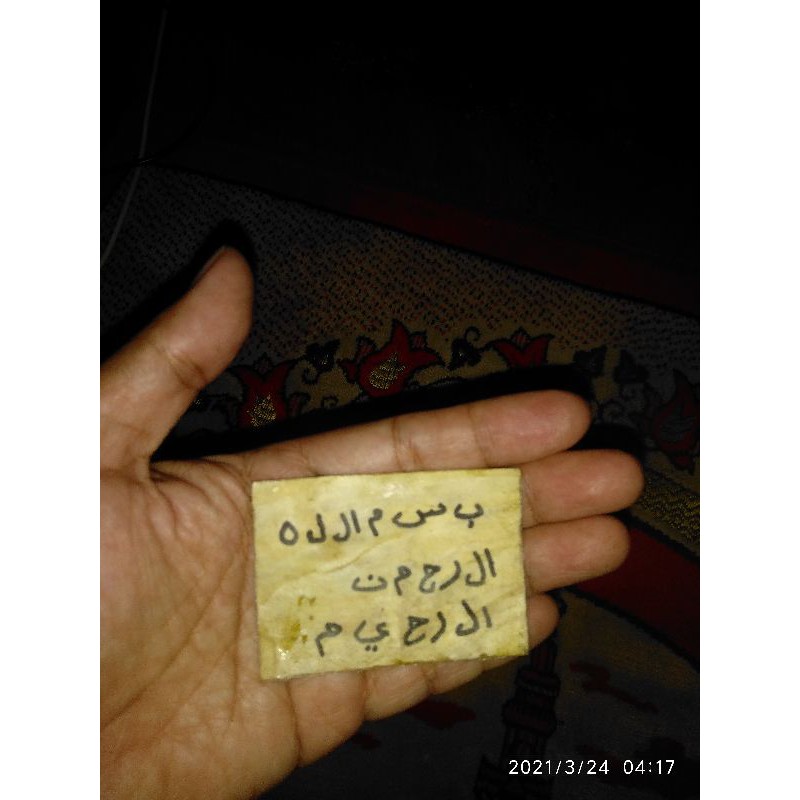 ب س م ال ل ه
ال ر ح م ن
ال ر ح ي م
2021/3/24 04:17